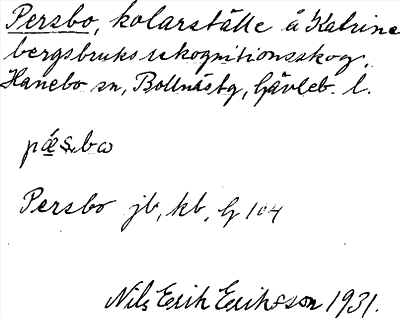 Persbo, kolarställe å Katrine
bergsbruks rekognitionsskog,
Hanebo sn, Bollnästg, Gävleb. l.
pǽs̱bω
Persbo jb, kb, G 104
Nils Erik Eriksson 1931.